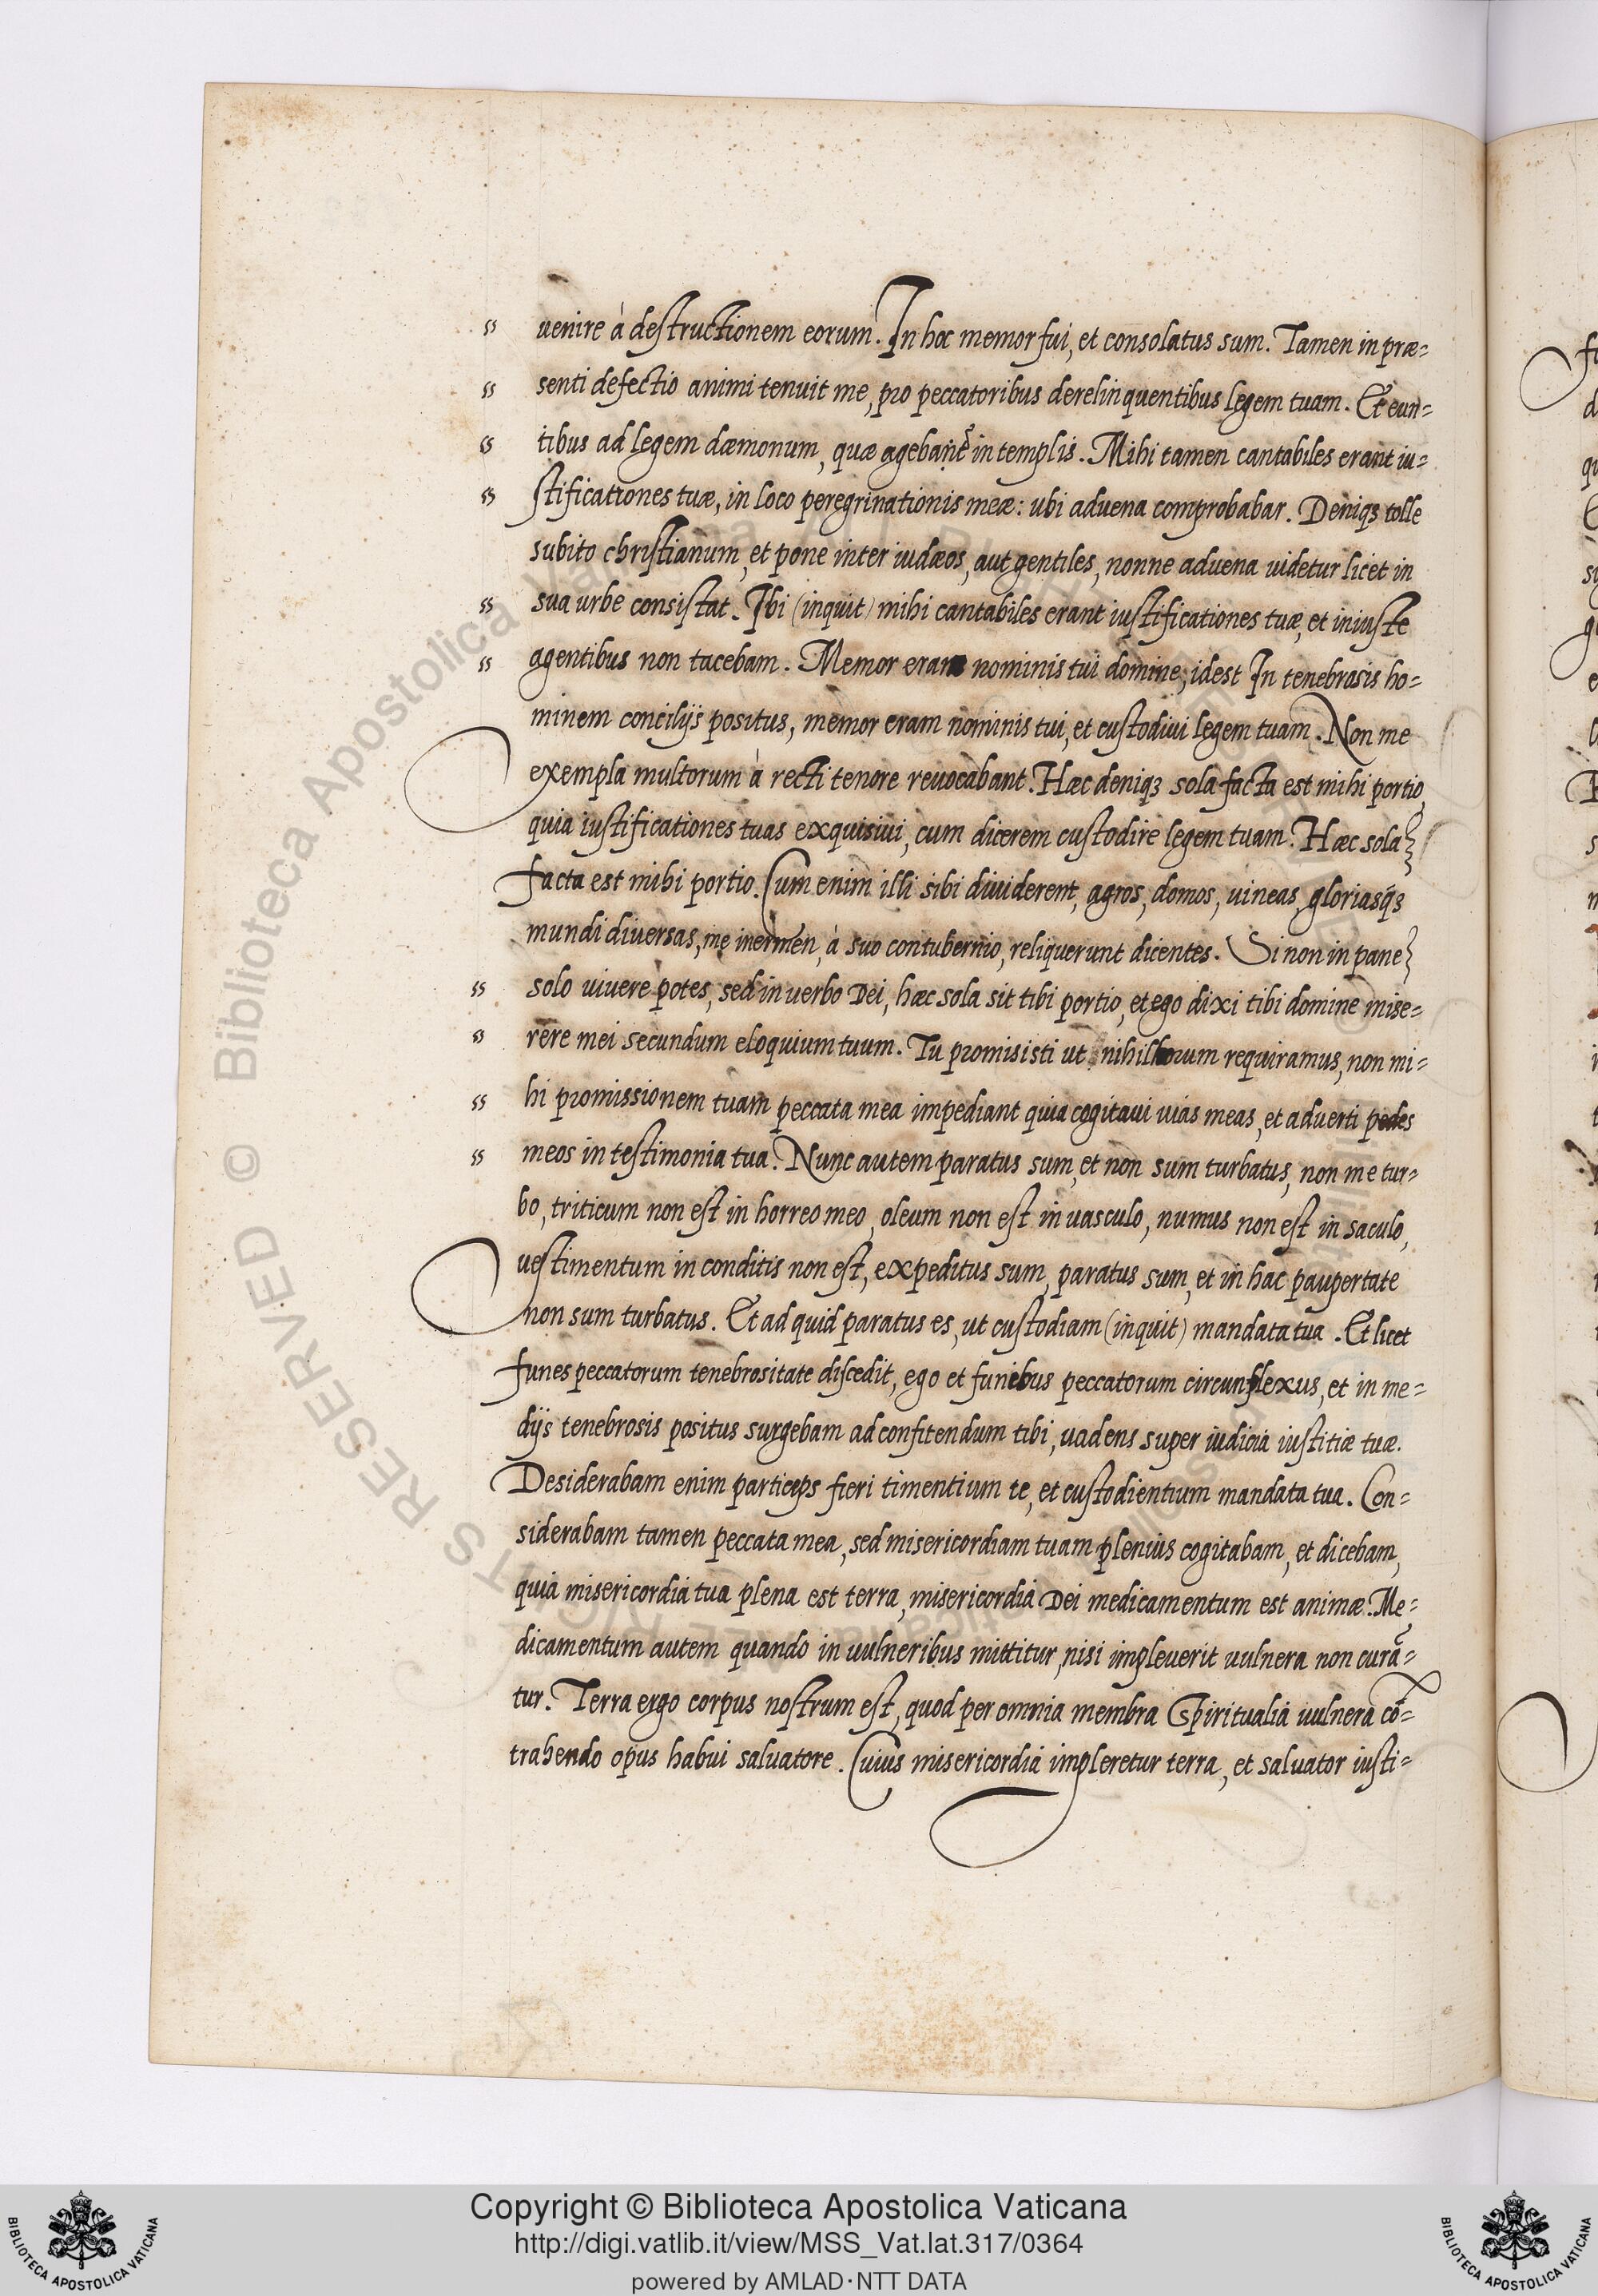 uenire à destructionem eorum. In hoc memor fui, et consolatus sum. Tamen in præ=
senti defectio animi tenuit me, pro peccatoribus derelinquentibus legem tuam. Et eun=
tibus ad legem dæmonum, quæ in templis. Mihi tamen cantabiles erant iu=
stificationes tuæ, in loco peregrinationis meæ: ubi aduena comprobabar. Deniqȝ tolle
subito christianum, et pone inter iudæos, aut gentiles, nonne aduena uidetur licet in
sua urbe consistat. Ibi (inquit) mihi cantabiles erant iustificationes tuæ, et iniuste
agentibus non tacebam. Memor nominis tui domine, idest In tenebrosis ho=
minem concilijs positus, memor eram nominis tui, et custodiui legem tuam. Non me
exempla multorum à recti tenore reuocabant. Hæc deniqȝ sola facta est mihi portio,
quia iustificationes tuas exquisiui, cum dicerem custodire legem tuam. Hæc sola
facta est mihi portio. Cum enim illi sibi diuiderent, agros, domos, uineas, gloriasqȝ
mundi diuersas, me inermen, à suo contubernio, reliquerunt dicentes. Si non in pane
solo uiuere potes, sed in uerbo Dei, hæc sola sit tibi portio, et ego dixi tibi domine mise=
rere mei secundum eloquium tuum. Tu promisisti ut nihil horum requiramus, non mi=
hi promissionem tuam peccata mea impediant quia cogitaui uias meas, et aduerti pedes
meos in testimonia tua. Nunc autem paratus sum, et non sum turbatus, non me tur=
bo, triticum non est in horreo meo, oleum non est in uasculo, numus non est in saculo,
uestimentum in conditis non est, expeditus sum, paratus sum, et in hac paupertate
non sum turbatus. Et ad quid paratus es, ut custodiam (inquit) mandata tua. Et licet
funes peccatorum tenebrositate discedit, ego et funibus peccatorum circunflexus, et in me=
dijs tenebrosis positus surgebam ad confitendum tibi, uadens super iudicia iustitiæ tuæ.
Desiderabam enim particeps fieri timentium te, et custodientium mandata tua. Con=
siderabam tamen peccata mea, sed misericordiam tuam plenius cogitabam, et dicebam,
quia misericordia tua plena est terra, misericordia Dei medicamentum est animæ. Me=
dicamentum autem quando in uulneribus mittitur, nisi impleuerit uulnera non curã=
tur. Terra ergo corpus nostrum est, quod per omnia membra Spiritualia uulnera cõ=
trahendo opus habui saluatore. Cuius misericordia impleretur terra, et saluator iusti=
Copyright © Biblioteca Apostolica Vaticana
http://digi.vatlib.it/view/MSS_Vat.lat.317/0364
powered by AMLAD·NTT DATA